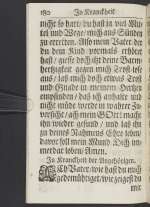 180 In Kranckheit
nicht so hart; du hast ja viel Mit-
tel und Wege/ mich aus Sünden
zu erretten. Also mein Vater/ der
du dein Kind vormals erhöret
hast/ giesse doch itzt deine Barm-
hertzigkeit gegen mich
und Gnade in meinem Hertzen
empfinden/ daß ich anhalte und
nicht müde werde in wahrer Zu-
versicht/ ach mein GOtt! mache
ihn wieder gesund/ und laß ihn
zu deines Nahmens Ehre leben/
davor soll mein Mund Dich im-
merdar loben/ Amen.
In Kranckheit der Angehörigen.
ACh Vater/ wie hast du mich
gedemüthiget/ wie